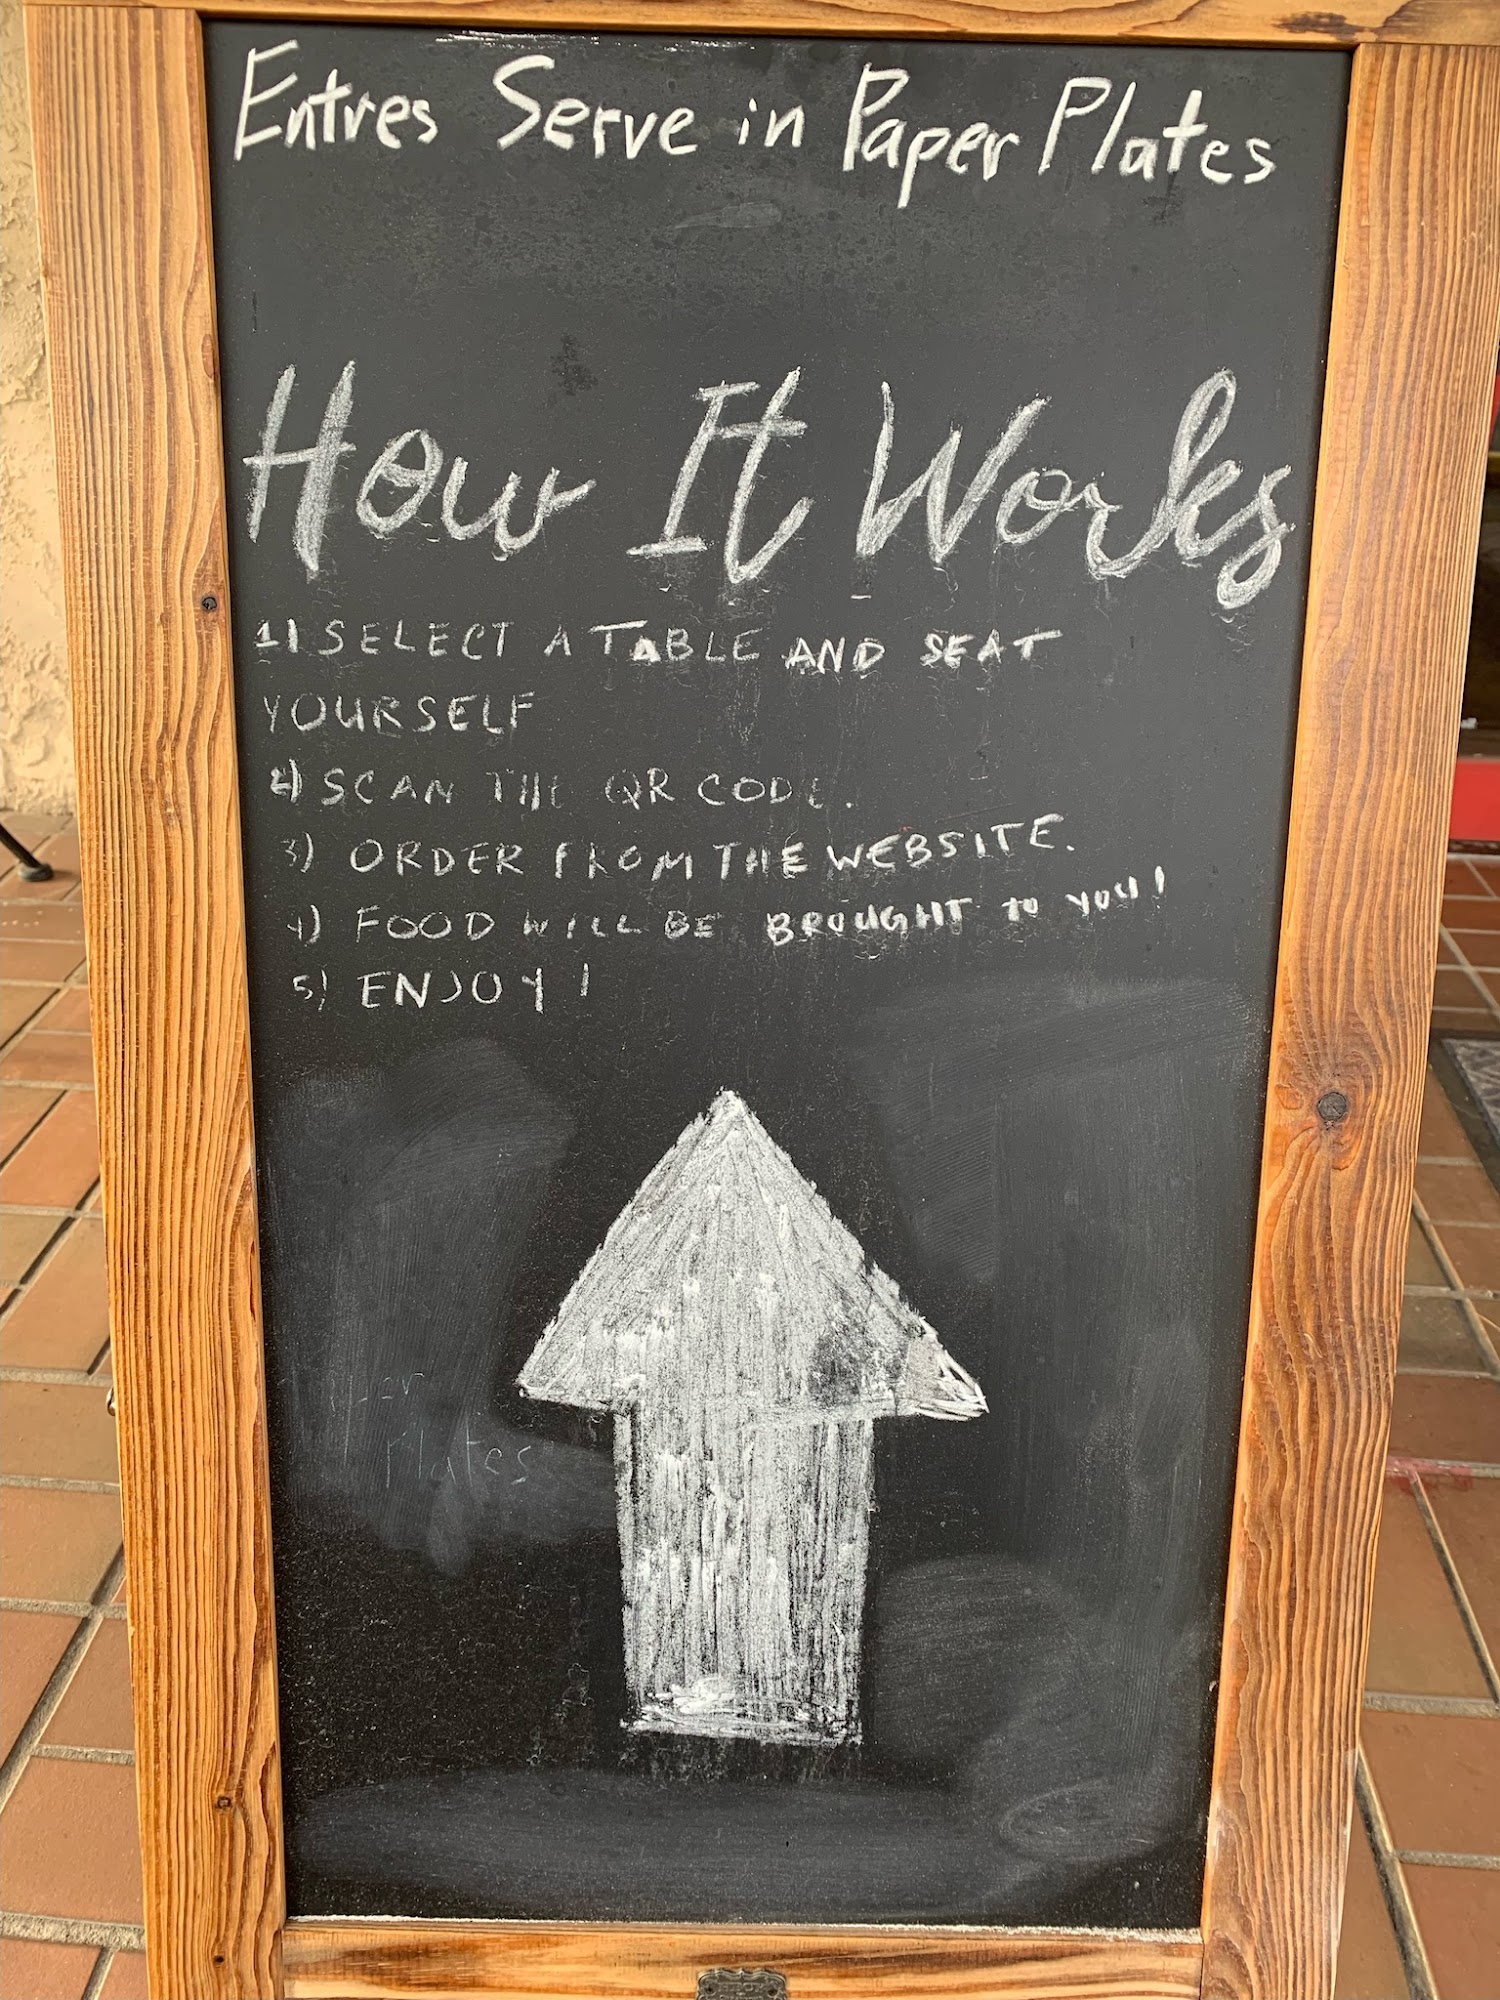 Entres Serve in Paper Plates
How It Works
1) SELECT A TABLE AND SEAT
YOURSELF
2) SCAN THE QR CODE.
3) ORDER FROM THE WEBSITE.
4) FOOD WILL BE BROUGHT to YOU!
5) ENJOY!
Plates